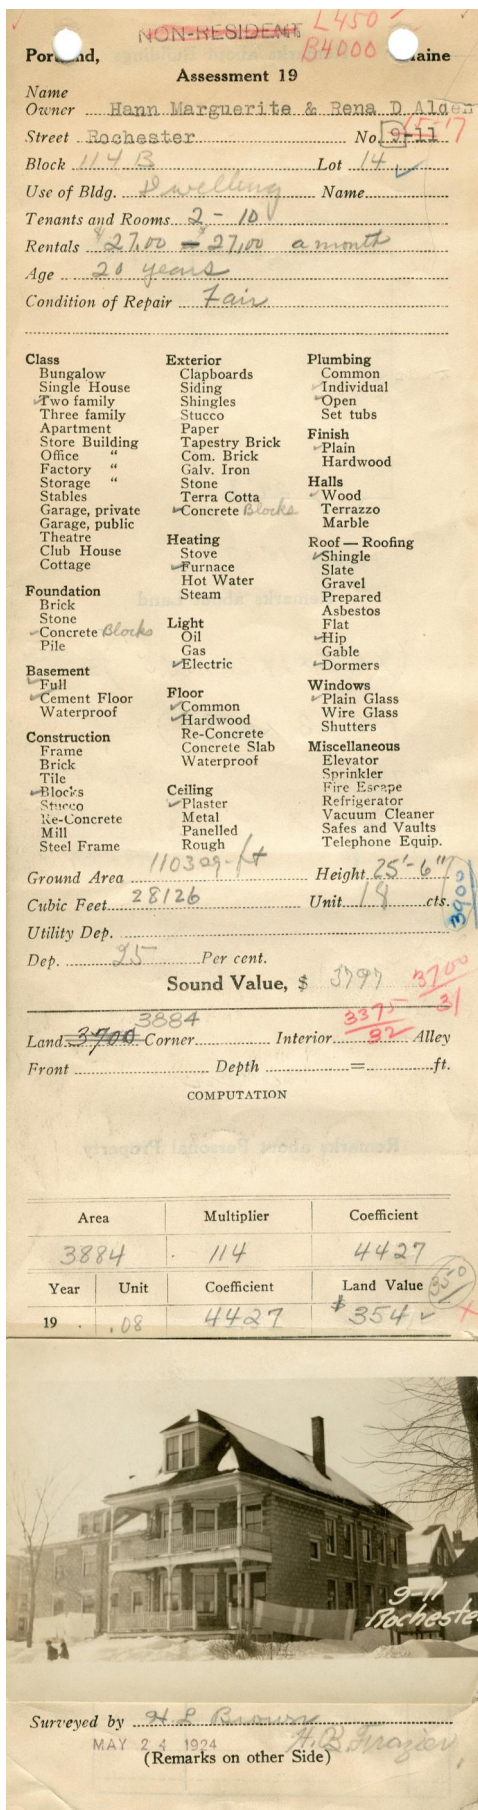 NON-RESIDENT L450
B4000
Portland, Maine
Assessment 19
Name
Owner Hann Marguerite & Rena D Alden
Street Rochester No. 9-11 15-17
Block 114 B Lot 14
Use of Bldg. Dwelling Name
Tenants and Rooms 2 - 10
Rentals $27.00 - $27.00 a month
Age 20 years
Condition of Repair Fair
Class
Bungalow
Single House
Two family
Three family
Apartment
Store Building
Office "
Factory "
Storage "
Stables
Garage, private
Garage, public
Theatre
Club House
Cottage
Foundation
Brick
Stone
Concrete Blocks
Pile
Basement
Full
Cement Floor
Waterproof
Construction
Frame
Brick
Tile
Blocks
Stucco
Re-Concrete
Mill
Steel Frame
Exterior
Clapboards
Siding
Shingles
Stucco
Paper
Tapestry Brick
Com. Brick
Galv. Iron
Stone
Terra Cotta
Concrete Blocks
Heating
Stove
Furnace
Hot Water
Steam
Light
Oil
Gas
Electric
Floor
Common
Hardwood
Re-Concrete
Concrete Slab
Waterproof
Ceiling
Plaster
Metal
Panelled
Rough
Plumbing
Common
Individual
Open
Set tubs
Finish
Plain
Hardwood
Halls
Wood
Terrazzo
Marble
Roof — Roofing
Shingle
Slate
Gravel
Prepared
Asbestos
Flat
Hip
Gable
Dormers
Windows
Plain Glass
Wire Glass
Shutters
Miscellaneous
Elevator
Sprinkler
Fire Escape
Refrigerator
Vacuum Cleaner
Safes and Vaults
Telephone Equip.
Ground Area 1103 sq-ft Height 25'-6"
Cubic Feet 28126 Unit 18 cts.
3900
Utility Dep.
Dep. 25 Per cent.
Sound Value, $ 3797
3700
31
3884
3375
32
Land 3700 Corner Interior Alley
Front Depth = ft.
COMPUTATION
Area Multiplier Coefficient
3884 114 4427
Year Unit Coefficient Land Value
350
19 .08 4427 $354
9-11
Rocheste
Surveyed by H L Brown
MAY 24 1924 H.B. Frazier
(Remarks on other Side)